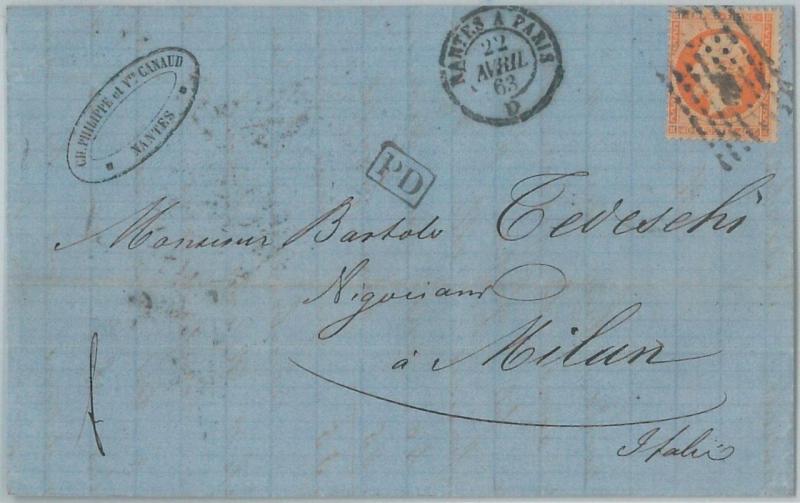 CH. PHILIPPE et Vve CANAUD
NANTES
NANTES A PARIS
22
AVRIL
63
D
PD
Monsieur Bartolo Tedeschi
Négociant
à Milan
Italie